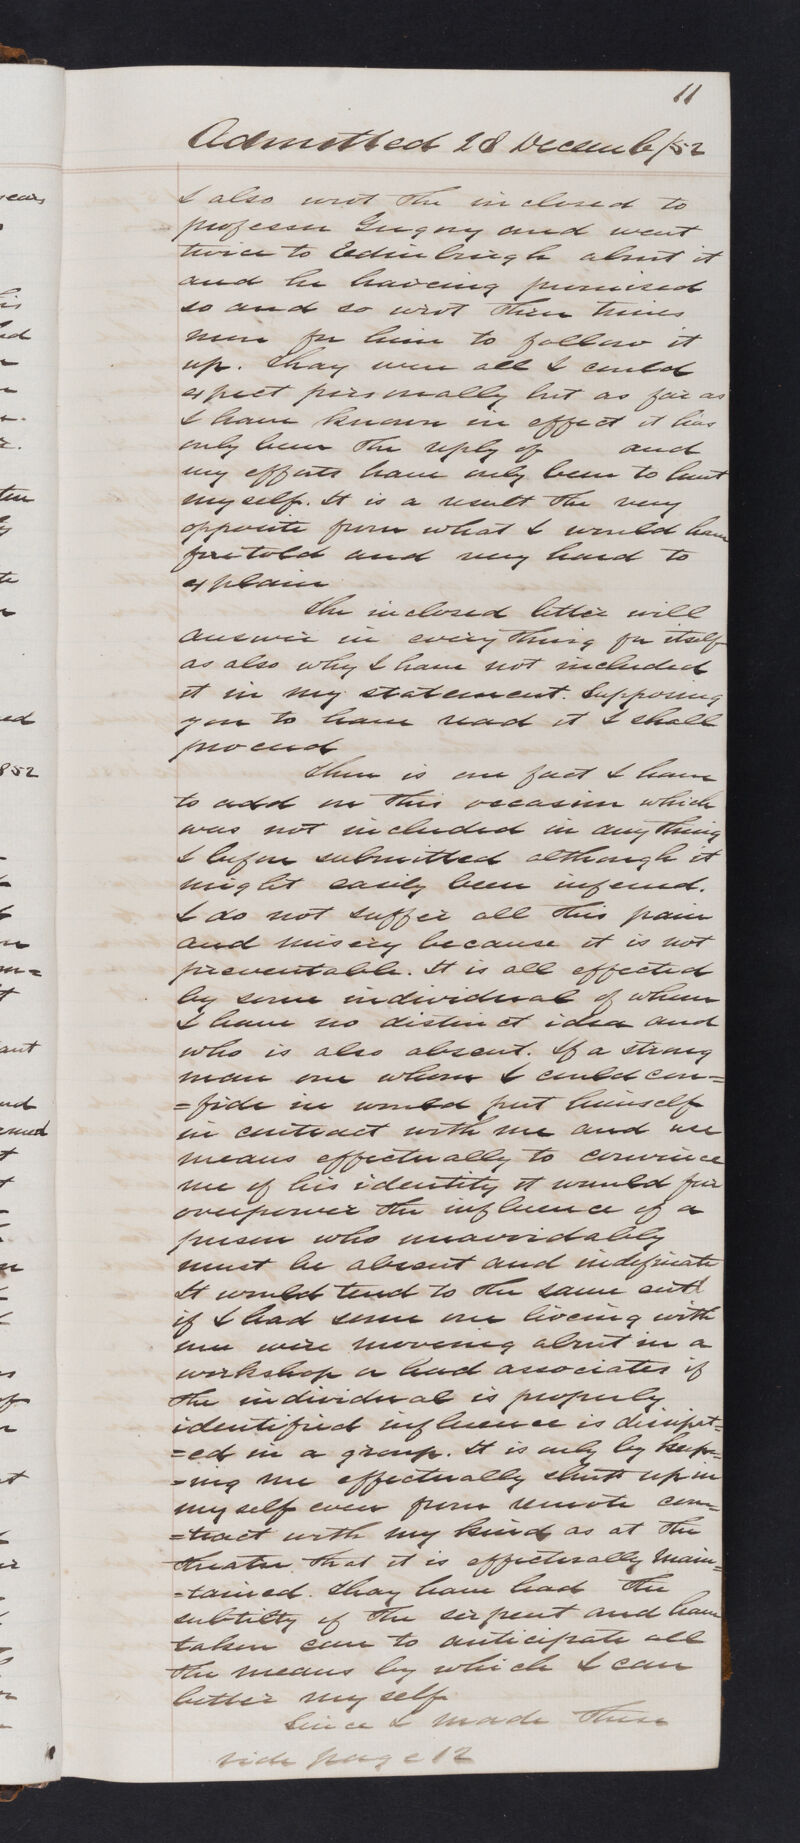 11
Admitted 28 December/52
I also wrot the inclosed to
professor Gregory and went
twice to Edinburgh about it
and he haveing promised
so and so wrot three times
more for him to follow it
up. Thay were all I could
expect personally but as far as
I have known in effect it has
only been the reply of and
my efforts have only been to hurt
myself. It is a result the very
opposite from what I would have
foretold and very hard to
explain
The inclosed letter will
answer in everything for itself
as also why I have not included
it in my statement. Supposing
you to have read it I shall
proceed
There is one fact I have
to add on this occasion which
was not included in anything
I before submitted although it
might easily been infered.
I do not suffer all this pain
and misery because it is not
preventable. It is all effected
by some individual of whom
I have no distinct idea and
who is also absent. If a strong
man one whom I could con=
=fide in would put himself
in contract with me and use
means effectually to convince
me of his identity it would far
overpower the influence of a
person who unavoidably
must be absent and indefinate
It would tend to the same end
if I had some one liveing with
me were moveing about in a
workshop or had associates if
the individual is properly
identified influence is dissipat=
=ed in a group. It is only by keep=
=ing me effectually shut up in
myself even from remote con=
=tract with my kind as at the
theatre that it is effectually main=
=tained. Thay have had the
subtilty of the serpent and have
taken care to anticipate all
the means by which I can
better myself
Since I made these
vide page 12
852